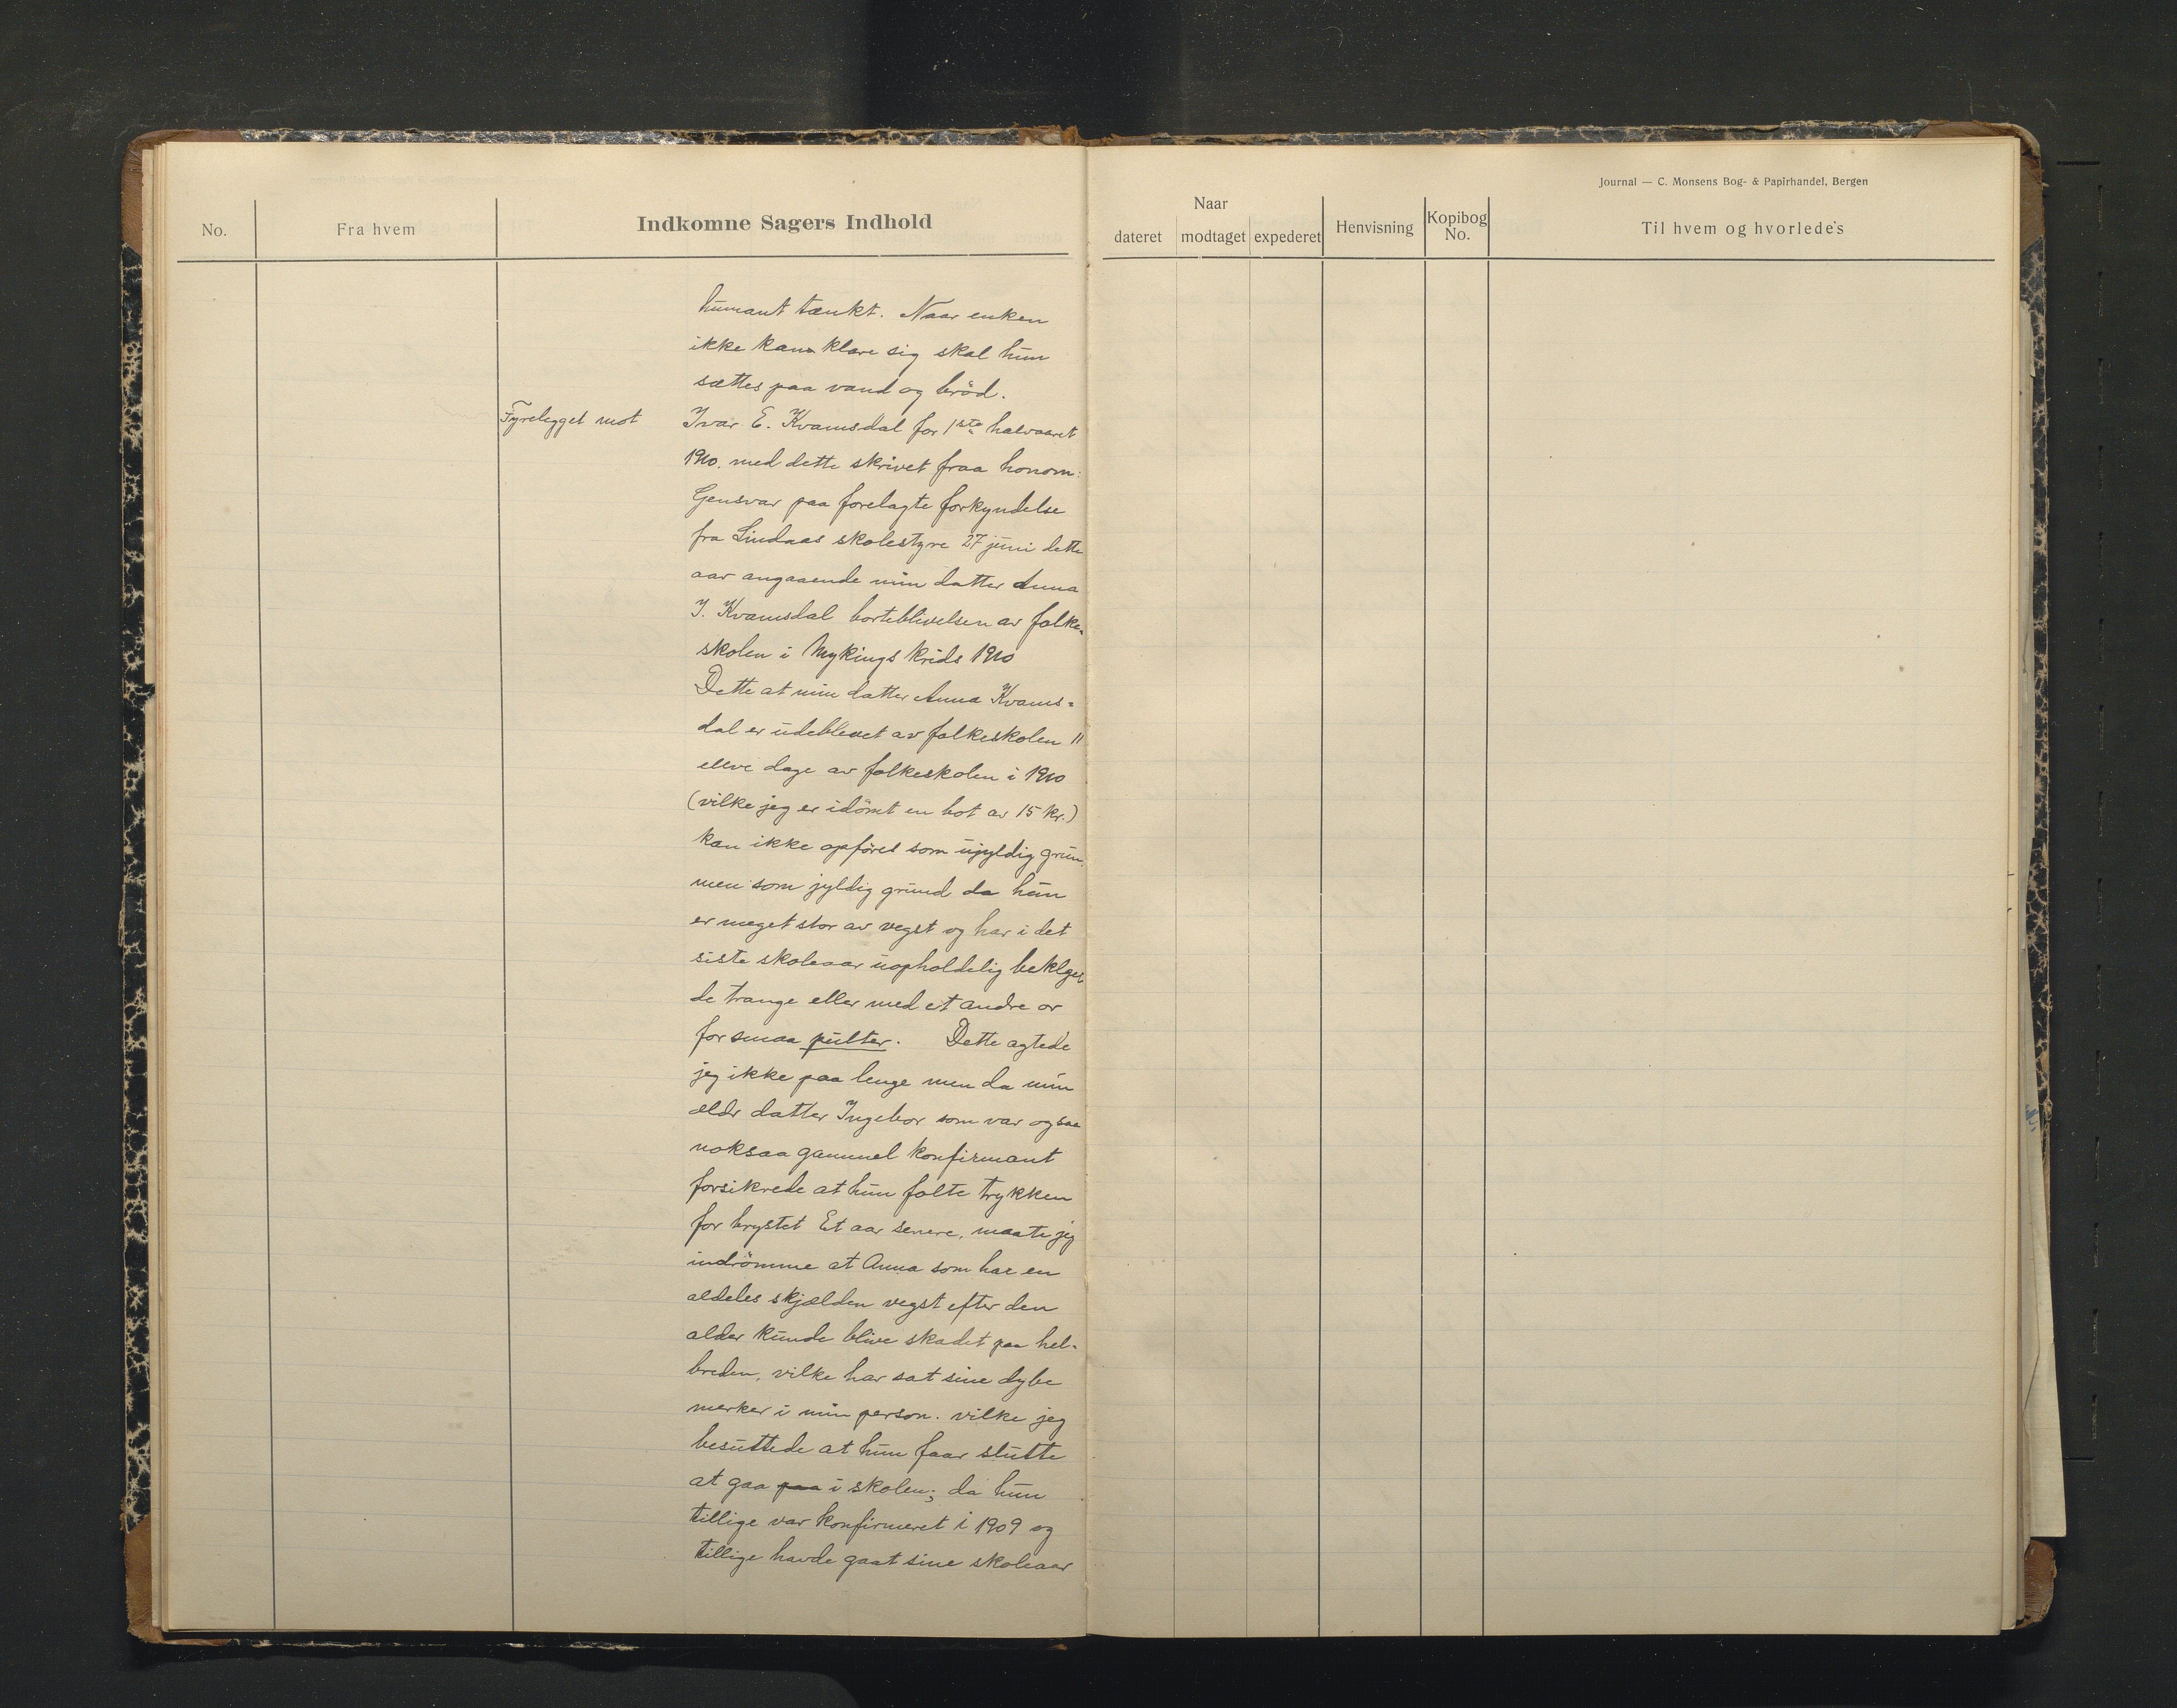 No.
Fra hvem
Indkomne Sagers Indhold
humant tænkt. Naar enken
ikke kan klare sig skal hun
sættes paa vand og bröd.
Fyrelegget mot Ivar E. Kvamsdal for 1ste halvaaret
1910. med dette skrivet fraa honom:
Gensvar paa forelagte forkyndelse
fra Lindaas skolestyre 27 juni dette
aar angaaende min datter Anna
I. Kvamsdal borteblivelsen av folke-
skolen i Mykings krids 1910
Dette at min datter Anna Kvams-
dal er udeblevet av folkeskolen 11
elleve dage av folkeskolen i 1910
(vilke jeg er idömt en bot av 15 kr.)
kan ikke opföres som ujyldig grun
men som jyldig grund da hun
er meget stor av vegst og har i det
siste skoleaar uopholdelig beklget
de trange eller med et andre or
for smaa pulter. Dette agtede
jeg ikke paa lenge men da min
eldr datter Ingebor som var ogsaa
noksaa gammel konfirmant
forsikrede at hun folte trykken
for brystet Et aar senere, maate jeg
indrömme at Anna som har en
aldeles skjælden vegst efter den
alder kunde blive skadet paa hel-
breden, vilke har sat sine dybe
merker i min person. vilke jeg
besuttede at hun faar slutte
at gaa paa i skolen; da hun
tillige var konfirmeret i 1909 og
tillige havde gaat sine skoleaar
Journal — C. Monsens Bog- & Papirhandel, Bergen
Naar
dateret
modtaget
expederet
Henvisning
Kopibog
No.
Til hvem og hvorledes